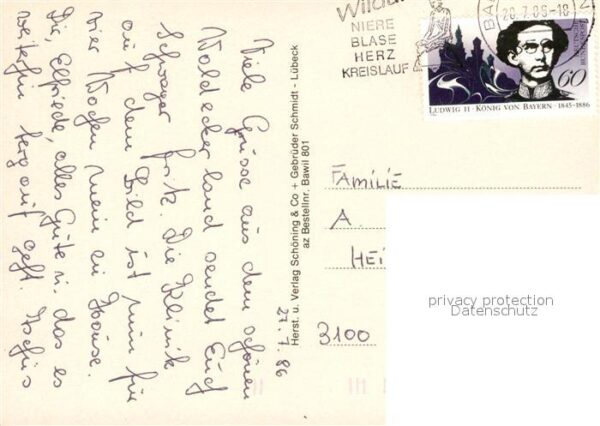 Viele Grüsse aus dem schönen
Waldecker land sendet Euch
Schwager Fritz. Die Klinik
auf dem Bild ist nun für
vier Wochen mein zu Hause.
Die, Elfriede, alles Gute u. das es
weiterhin berg auf geht. Tschüs
27.7.86
Herst. u. Verlag Schöning & Co + Gebrüder Schmidt - Lübeck
az Bestellnr. Bawil 801
NIERE
BLASE
HERZ
KREISLAUF
BA
28.7.86-18
60
LUDWIG II · KÖNIG VON BAYERN · 1845-1886
FAMILIE
A.
HEI
3100
privacy protection
Datenschutz